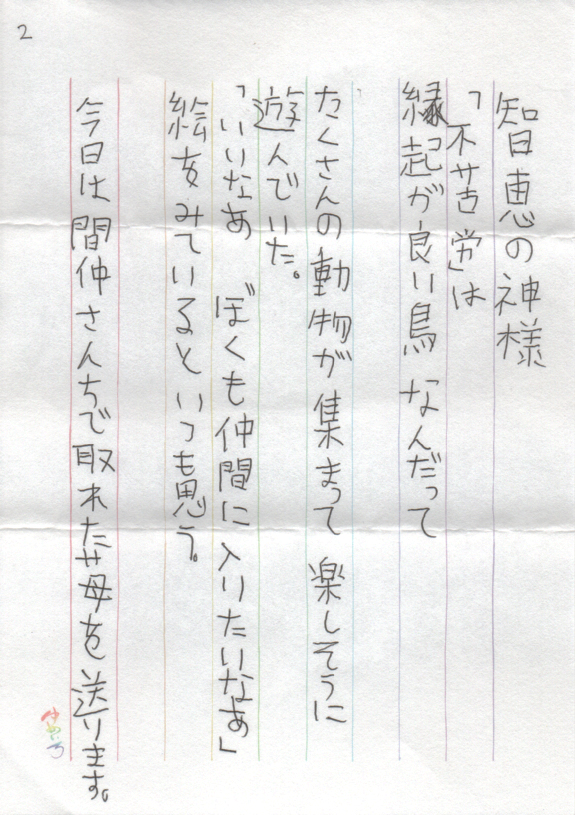 2
智恵の神様
「不苦労」は
縁起が良い鳥 なんだって
たくさんの動物が集まって 楽しそうに
遊んでいた。
「いいなあ ぼくも仲間に入りたいなあ」
絵をみているといつも思う。
今日は間仲さんちで取れた苺を送ります。